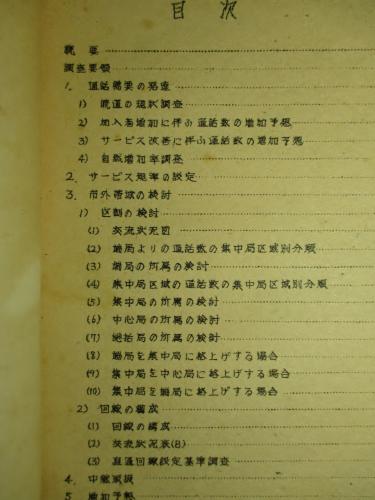 目 次
概 要
調査要領
1. 通話需要の調査
1) 疎通の現状調査
2) 加入者増加に伴ふ通話数の増加予想
3) サービス改善に伴ふ通話数の増加予想
4) 自然増加率調査
2. サービス規準の設定
3. 市外帯域の検討
1) 区劃の検討
(1) 交流状況図
(2) 端局よりの通話数の集中局区域別分類
(3) 端局の所属の検討
(4) 集中局区域の通話数の集中局区域別分類
(5) 集中局の所属の検討
(6) 中心局の所属の検討
(7) 総括局の所属の検討
(8) 端局を集中局に格上げする場合
(9) 集中局を中心局に格上げする場合
(10) 集中局を端局に格下げする場合
2) 回線の構成
(1) 回線の構成
(2) 交流状況表(B)
(3) 直通回線設定基準調査
4. 中継
5. 増加予想